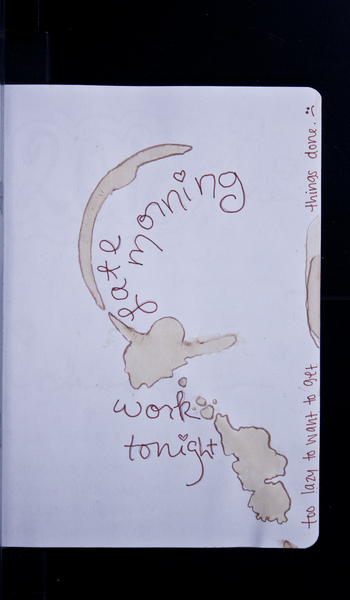 late
morning
work
tonight
too lazy to want to get things done. :(